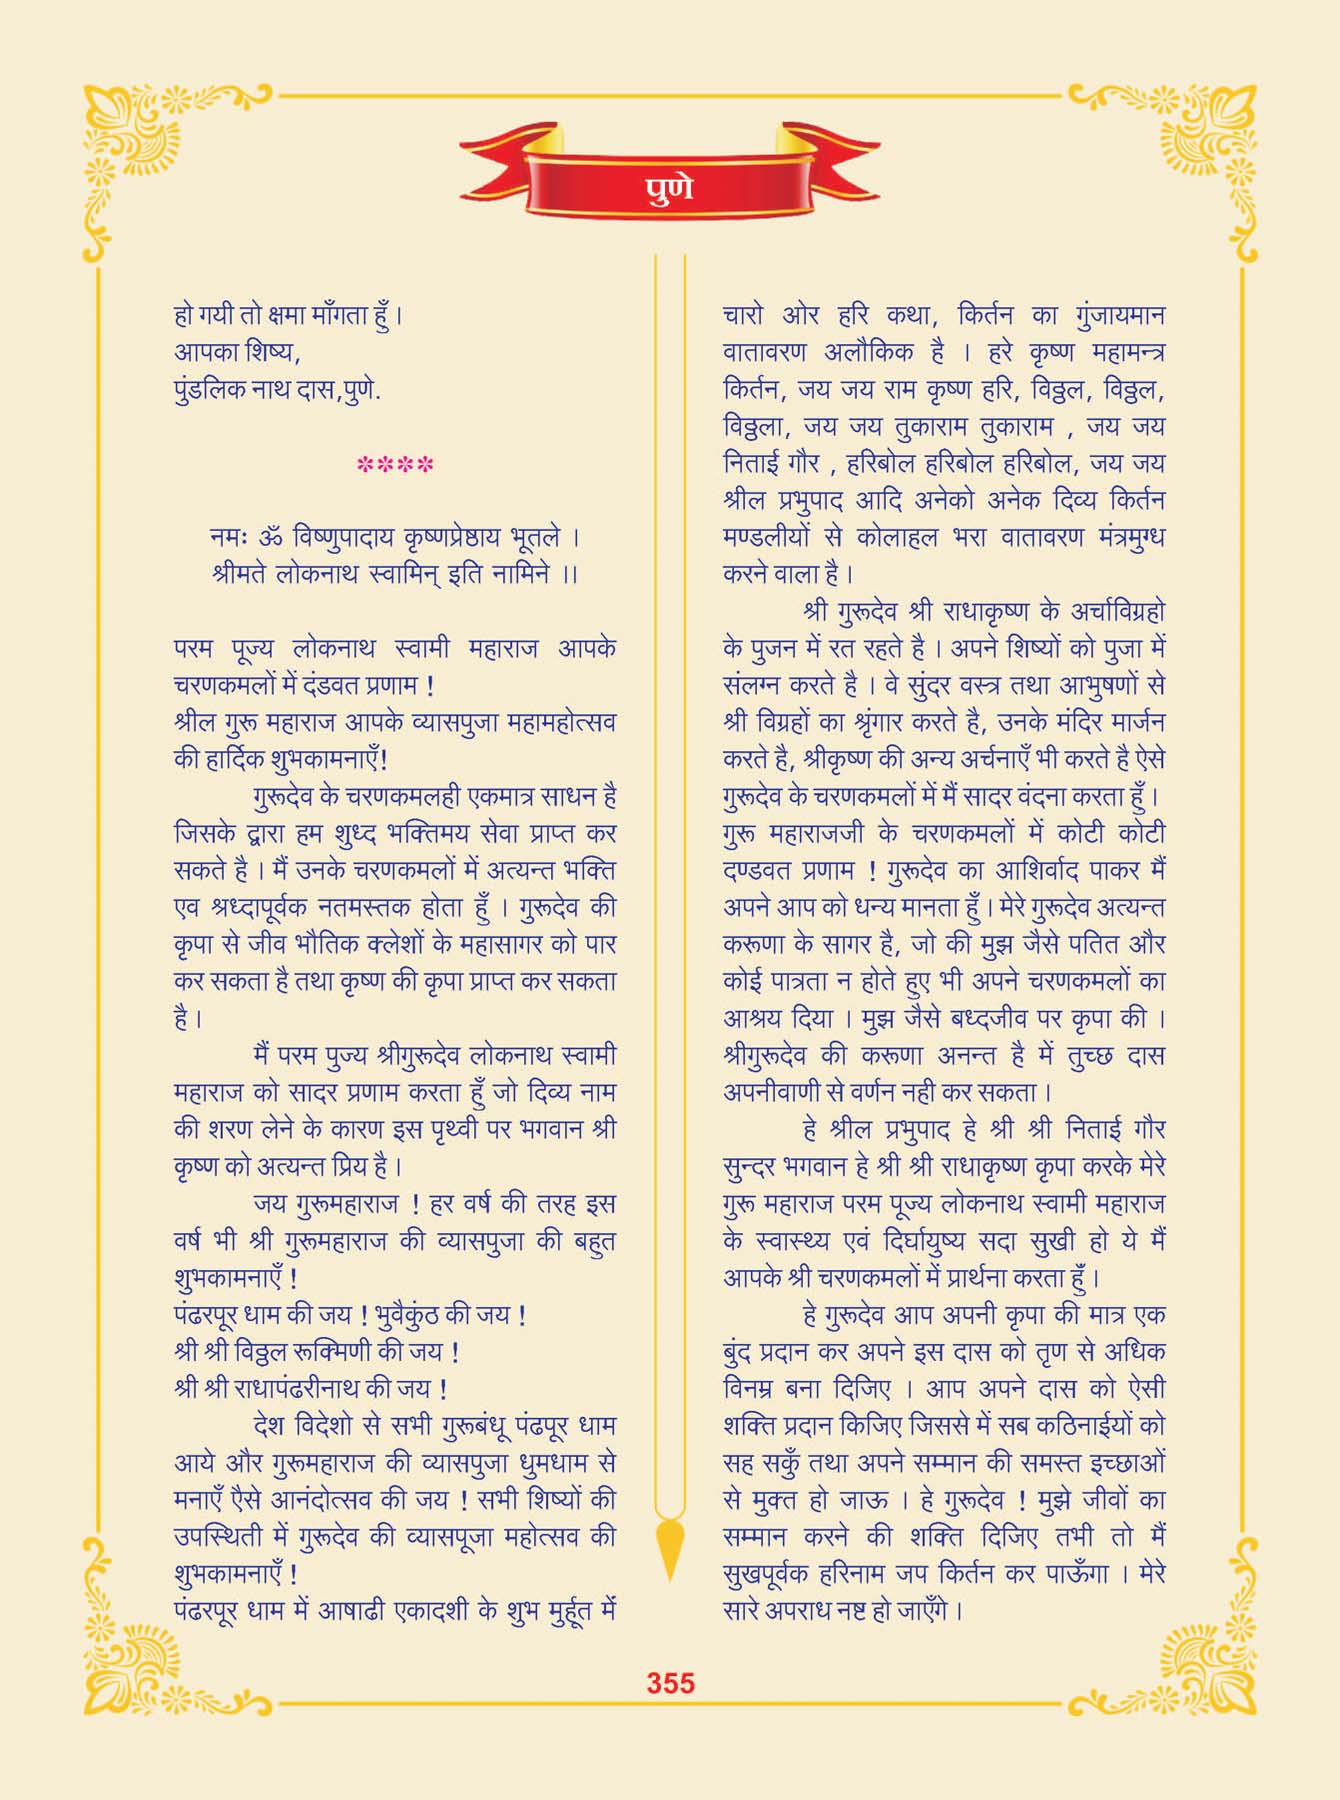 पुणे
हो गयी तो क्षमा माँगता हुँ ।
आपका शिष्य,
पुंडलिक नाथ दास,पुणे.
****
नमः ॐ विष्णुपादाय कृष्णप्रेष्ठाय भूतले ।
श्रीमते लोकनाथ स्वामिन् इति नामिने ।।
परम पूज्य लोकनाथ स्वामी महाराज आपके
चरणकमलों में दंडवत प्रणाम !
श्रील गुरू महाराज आपके व्यासपुजा महामहोत्सव
की हार्दिक शुभकामनाएँ!
गुरूदेव के चरणकमलही एकमात्र साधन है
जिसके द्वारा हम शुध्द भक्तिमय सेवा प्राप्त कर
सकते है । मैं उनके चरणकमलों में अत्यन्त भक्ति
एव श्रध्दापूर्वक नतमस्तक होता हुँ । गुरूदेव की
कृपा से जीव भौतिक क्लेशों के महासागर को पार
कर सकता है तथा कृष्ण की कृपा प्राप्त कर सकता
है ।
मैं परम पुज्य श्रीगुरूदेव लोकनाथ स्वामी
महाराज को सादर प्रणाम करता हुँ जो दिव्य नाम
की शरण लेने के कारण इस पृथ्वी पर भगवान श्री
कृष्ण को अत्यन्त प्रिय है ।
जय गुरूमहाराज ! हर वर्ष की तरह इस
वर्ष भी श्री गुरूमहाराज की व्यासपुजा की बहुत
शुभकामनाएँ !
पंढरपूर धाम की जय ! भुवैकुंठ की जय !
श्री श्री विठ्ठल रूक्मिणी की जय !
श्री श्री राधापंढरीनाथ की जय !
देश विदेशो से सभी गुरूबंधू पंढपूर धाम
आये और गुरूमहाराज की व्यासपुजा धुमधाम से
मनाएँ ऐसे आनंदोत्सव की जय ! सभी शिष्यों की
उपस्थिती में गुरूदेव की व्यासपूजा महोत्सव की
शुभकामनाएँ !
पंढरपूर धाम में आषाढी एकादशी के शुभ मुर्हूत में
चारो ओर हरि कथा, किर्तन का गुंजायमान
वातावरण अलौकिक है । हरे कृष्ण महामन्त्र
किर्तन, जय जय राम कृष्ण हरि, विठ्ठल, विठ्ठल,
विठ्ठला, जय जय तुकाराम तुकाराम , जय जय
निताई गौर , हरिबोल हरिबोल हरिबोल, जय जय
श्रील प्रभुपाद आदि अनेको अनेक दिव्य किर्तन
मण्डलीयों से कोलाहल भरा वातावरण मंत्रमुग्ध
करने वाला है ।
श्री गुरूदेव श्री राधाकृष्ण के अर्चाविग्रहो
के पुजन में रत रहते है । अपने शिष्यों को पुजा में
संलग्न करते है । वे सुंदर वस्त्र तथा आभुषणों से
श्री विग्रहों का श्रृंगार करते है, उनके मंदिर मार्जन
करते है, श्रीकृष्ण की अन्य अर्चनाएँ भी करते है ऐसे
गुरूदेव के चरणकमलों में मैं सादर वंदना करता हुँ ।
गुरू महाराजजी के चरणकमलों में कोटी कोटी
दण्डवत प्रणाम ! गुरूदेव का आशिर्वाद पाकर मैं
अपने आप को धन्य मानता हुँ । मेरे गुरूदेव अत्यन्त
करूणा के सागर है, जो की मुझ जैसे पतित और
कोई पात्रता न होते हुए भी अपने चरणकमलों का
आश्रय दिया । मुझ जैसे बध्दजीव पर कृपा की ।
श्रीगुरूदेव की करूणा अनन्त है में तुच्छ दास
अपनीवाणी से वर्णन नही कर सकता ।
हे श्रील प्रभुपाद हे श्री श्री निताई गौर
सुन्दर भगवान हे श्री श्री राधाकृष्ण कृपा करके मेरे
गुरू महाराज परम पूज्य लोकनाथ स्वामी महाराज
के स्वास्थ्य एवं दिर्घायुष्य सदा सुखी हो ये मैं
आपके श्री चरणकमलों में प्रार्थना करता हुँ ।
हे गुरूदेव आप अपनी कृपा की मात्र एक
बुंद प्रदान कर अपने इस दास को तृण से अधिक
विनम्र बना दिजिए । आप अपने दास को ऐसी
शक्ति प्रदान किजिए जिससे में सब कठिनाईयों को
सह सकुँ तथा अपने सम्मान की समस्त इच्छाओं
से मुक्त हो जाऊ । हे गुरूदेव ! मुझे जीवों का
सम्मान करने की शक्ति दिजिए तभी तो मैं
सुखपूर्वक हरिनाम जप किर्तन कर पाऊँगा । मेरे
सारे अपराध नष्ट हो जाएँगे ।
355